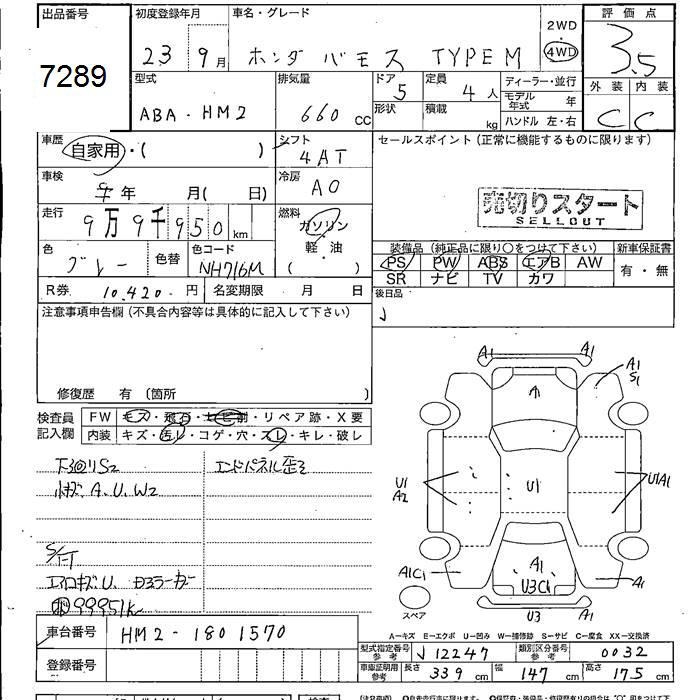 出品番号
7289
初度登録年月
23 9月
車名・グレード
ホンダ バモス TYPE M
2WD
4WD
評価点
3.5
型式
ABA・HM2
排気量
660 CC
ドア
5
形状
定員
4人
積載
kg
ディーラー・並行
モデル年式 年
ハンドル 左・右
外装 内装
C C
車歴
自家用・( )
シフト
4AT
車検
年 月( 日)
冷房
AC
走行
9万9千950km
燃料
ガソリン
軽・油
( )
色
グレー
色替
色コード
NH716M
R券 10,420円
名変期限 月 日
セールスポイント(正常に機能するものに限ります)
売切りスタート
SELLOUT
装備品(純正品に限り○をつけて下さい)
新車保証書
PS PW ABS エアB AW
SR ナビ TV カワ
有・無
後日品
注意事項申告欄(不具合内容等は具体的に記入して下さい)
修復歴 有(箇所 )
検査員記入欄
FW キズ・飛石・ リペア跡・X要
内装 キズ・汚レ・コゲ・穴・スレ・キレ・破レ
下廻りS2
小キズ A.U.W2
エンドパネル歪ミ
エアロキズU.
99951K
A1
A1
A1
A1
S1
U1
A2
U1
U1A1
A1C1
A1
U3C1
A1
スペア
U3
A1
A-キズ E-エクボ U-凹み W-補修跡 S-サビ C-腐食 XX-交換済
車台番号 HM2-1801570
登録番号
型式指定番号 参考 12247
類別区分番号 参考 0032
車庫証明用 参考 長さ 339 cm 幅 147 cm 高さ 175 cm